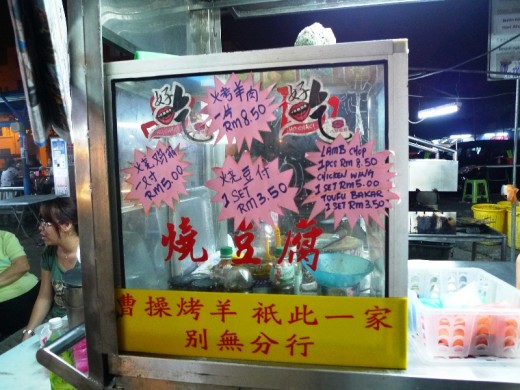 好吃
好吃
烤羊肉
一片
RM 8.50
RM 5.00
烧豆付
1 SET
RM 3.50
LAMB CHOP
1 PCS RM 8.50
CHICKEN WING
1 SET RM 5.00
TOUFU BAKAR
1 SET RM 3.50
燒豆腐
曹操烤羊 祇此一家
別無分行